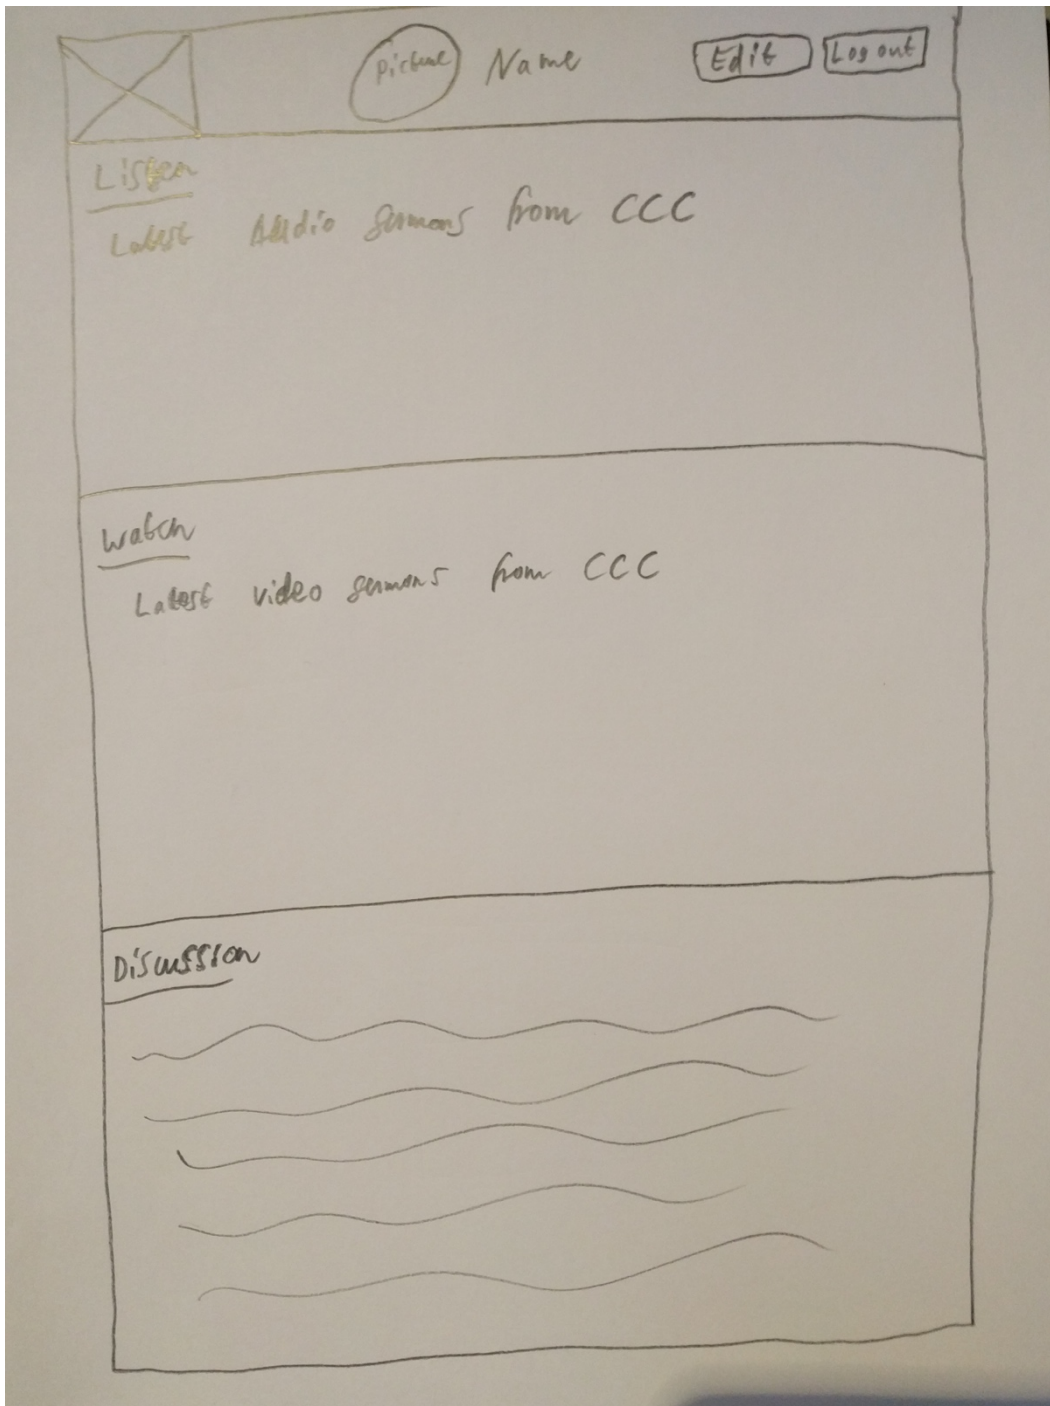 Picture Name Edit Log out
Listen
Latest Audio sermons from CCC
Watch
Latest video sermons from CCC
Discussion